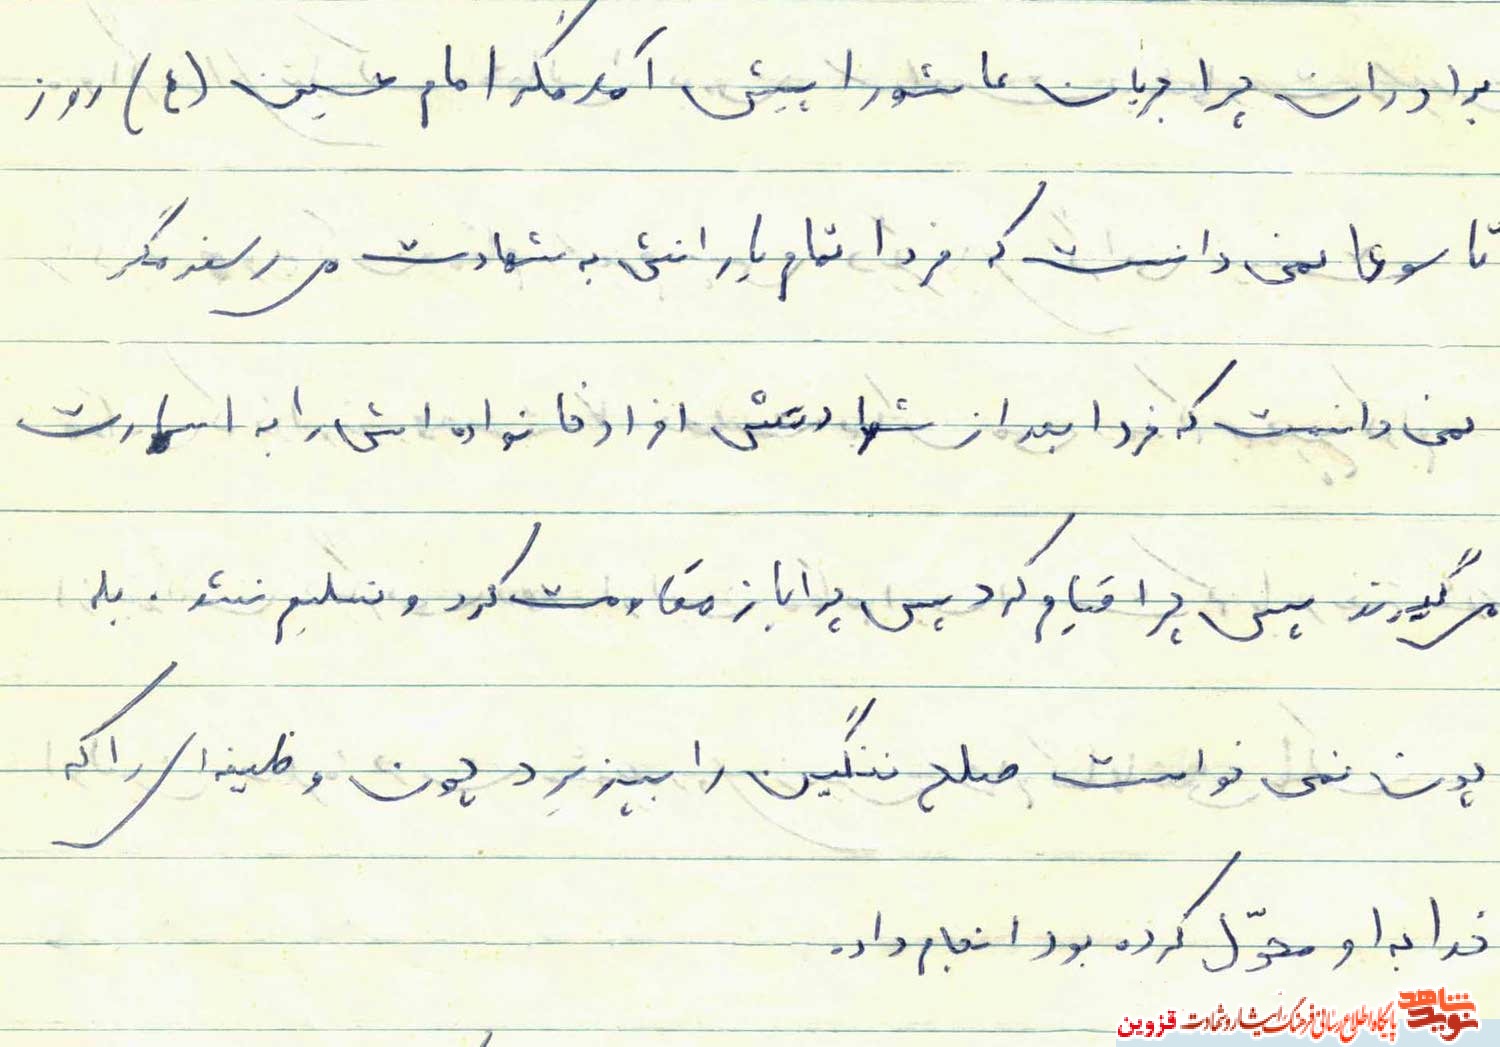 برادران چرا جریان عاشورا پیش آمد مگر امام حسین (ع) روز
تاسوعا نمی دانست که فردا تمام یارانش به شهادت می رسند مگر
نمی دانست که فردا بعد از شهادتش افراد خانواده اش را به اسارت
می گیرند پس چرا قیام کرد پس چرا باز مقاومت کرد و تسلیم نشد . بله
چون نمی خواست صلح ننگین را بپذیرد چون وظیفه ای را که
خدا به او محوّل کرده بود انجام داد.
نوید شاهد پایگاه اطلاع رسانی فرهنگ ایثار و شهادت قزوین